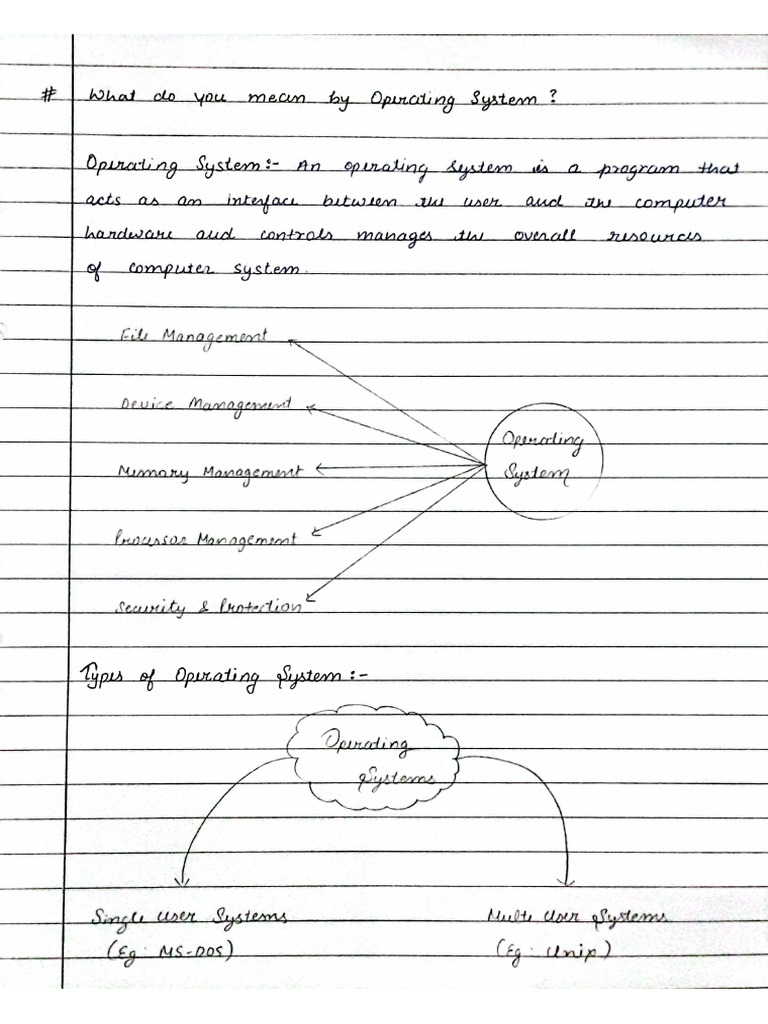 # What do you mean by Operating System ?
Operating System:- An operating system is a program that
acts as an interface between the user and the computer
hardware and controls manages the overall resources
of computer system.
File Management
Device Management
Operating
Memory Management
System
Processor Management
Security & Protection
Types of Operating System :-
Operating
Systems
Single User Systems
Multi User Systems
(Eg: MS-DOS)
(Eg: Unix)